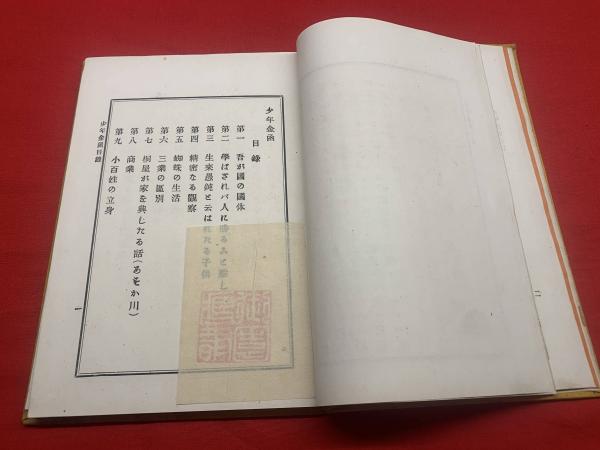 少年金函
目錄
第一 吾が國の國体
第二 學ばざれバ人に勝るみと難し
第三 生來愚鈍と云はれたる子供
第四 精密なる觀察
第五 蜘蛛の生活
第六 三業の區別
第七 桐屋が家を興したる話(あそか川)
第八 商業
第九 小百姓の立身
少年金函目錄
一
二